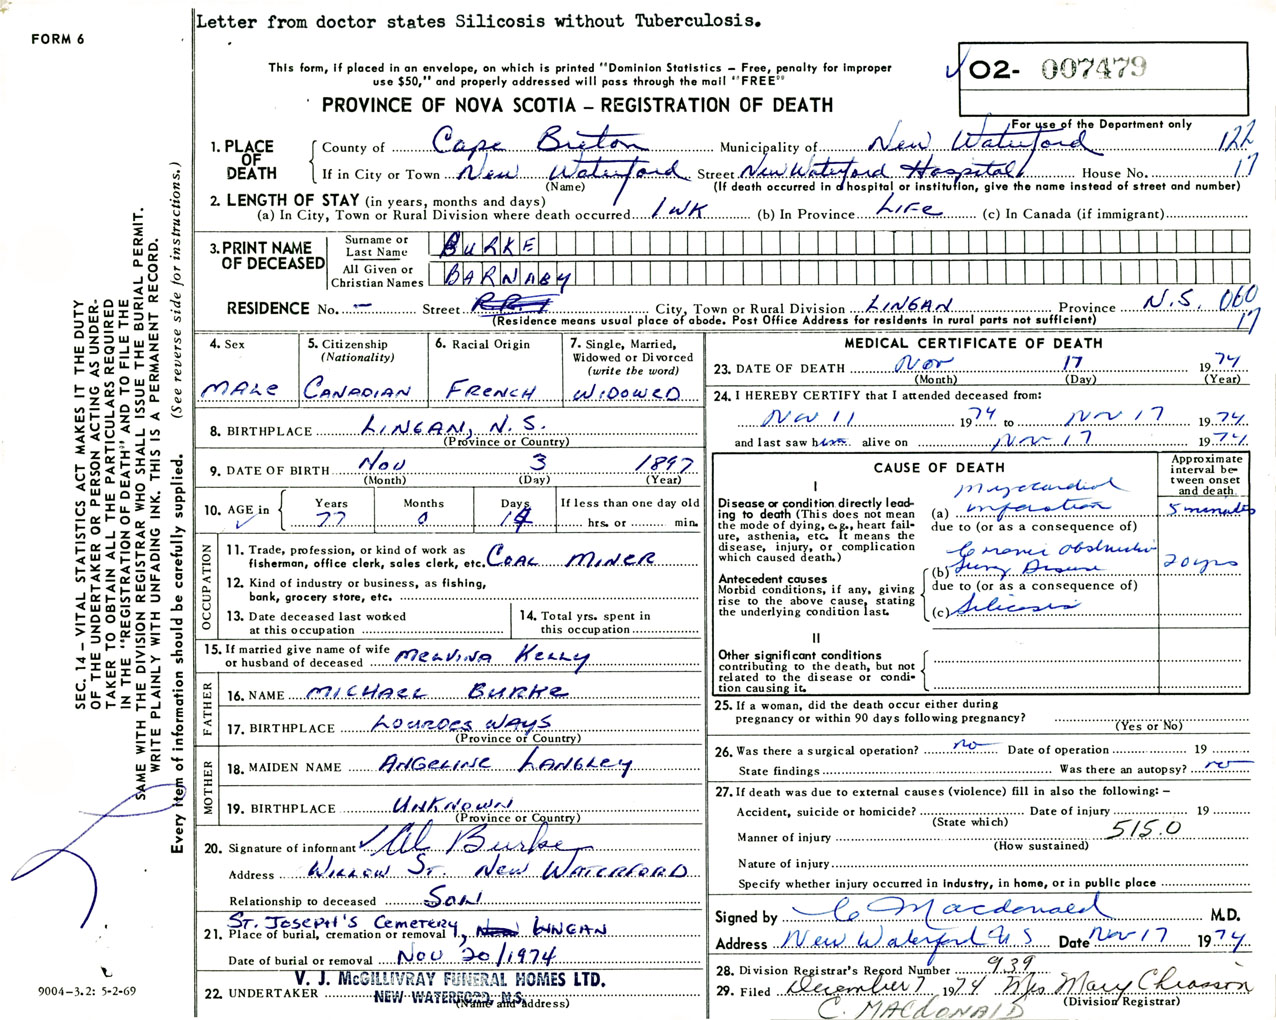 Letter from doctor states Silicosis without Tuberculosis.
FORM 6
This form, if placed in an envelope, on which is printed "Dominion Statistics – Free, penalty for improper
use $50," and properly addressed will pass through the mail "FREE"
O2- 007479
PROVINCE OF NOVA SCOTIA – REGISTRATION OF DEATH
For use of the Department only
1. PLACE OF DEATH
County of Cape Breton Municipality of New Waterford 122
If in City or Town New Waterford Street New Waterford Hospital House No. 17
(Name) (If death occurred in a hospital or institution, give the name instead of street and number)
2. LENGTH OF STAY (in years, months and days)
(a) In City, Town or Rural Division where death occurred 1 WK (b) In Province LIFE (c) In Canada (if immigrant)
3. PRINT NAME OF DECEASED
Surname or Last Name BURKE
All Given or Christian Names BARNABY
RESIDENCE No. — Street RR1 City, Town or Rural Division LINGAN Province N.S. 060
(Residence means usual place of abode. Post Office Address for residents in rural parts not sufficient) 17
4. Sex MALE
5. Citizenship (Nationality) CANADIAN
6. Racial Origin FRENCH
7. Single, Married, Widowed or Divorced (write the word) WIDOWED
8. BIRTHPLACE LINGAN, N.S.
(Province or Country)
9. DATE OF BIRTH Nov 3 1897
(Month) (Day) (Year)
10. AGE in Years Months Days If less than one day old
77 0 14 hrs. or min.
OCCUPATION
11. Trade, profession, or kind of work as
fisherman, office clerk, sales clerk, etc. COAL MINER
12. Kind of industry or business, as fishing,
bank, grocery store, etc.
13. Date deceased last worked
at this occupation
14. Total yrs. spent in
this occupation
15. If married give name of wife
or husband of deceased MELVINA KELLY
FATHER
16. NAME MICHAEL BURKE
17. BIRTHPLACE LOURDES WAYS
(Province or Country)
MOTHER
18. MAIDEN NAME ANGELINE LANGLEY
19. BIRTHPLACE UNKNOWN
(Province or Country)
20. Signature of informant Al Burke
Address WILLOW ST. NEW WATERFORD
Relationship to deceased SON
ST. JOSEPH'S CEMETERY, LINGAN
21. Place of burial, cremation or removal
Date of burial or removal NOV 20/1974
V. J. McGILLIVRAY FUNERAL HOMES LTD.
22. UNDERTAKER NEW WATERFORD, N.S.
(Name and address)
MEDICAL CERTIFICATE OF DEATH
23. DATE OF DEATH Nov 17 1974
(Month) (Day) (Year)
24. I HEREBY CERTIFY that I attended deceased from:
Nov 11 1974 to Nov 17 1974
and last saw him alive on Nov 17 1974
CAUSE OF DEATH
Approximate interval between onset and death
I
Disease or condition directly leading to death (This does not
mean the mode of dying, e.g., heart failure, asthenia, etc. It means the
disease, injury, or complication
which caused death.)
Myocardial
(a) infarction 5 minutes
due to (or as a consequence of)
Chronic Obstructive
(b) Lung Disease 20 yrs
due to (or as a consequence of)
(c) Silicosis
Antecedent causes
Morbid conditions, if any, giving
rise to the above cause, stating
the underlying condition last.
II
Other significant conditions
contributing to the death, but not
related to the disease or condition causing it.
25. If a woman, did the death occur either during
pregnancy or within 90 days following pregnancy?
(Yes or No)
26. Was there a surgical operation? no Date of operation 19
State findings Was there an autopsy? no
27. If death was due to external causes (violence) fill in also the following: –
Accident, suicide or homicide? Date of injury 19
(State which)
Manner of injury 515.0
(How sustained)
Nature of injury
Specify whether injury occurred in Industry, in home, or in public place
Signed by C Macdonald M.D.
Address New Waterford N S Date Nov 17 1974
28. Division Registrar's Record Number 939
29. Filed December 7 1974 Mrs Mary Chiasson
(Division Registrar)
C. MACDONALD
SEC. 14 – VITAL STATISTICS ACT MAKES IT THE DUTY
OF THE UNDERTAKER OR PERSON ACTING AS UNDER-
TAKER TO OBTAIN ALL THE PARTICULARS REQUIRED
IN THE "REGISTRATION OF DEATH" AND TO FILE THE
SAME WITH THE DIVISION REGISTRAR WHO SHALL ISSUE THE BURIAL PERMIT.
WRITE PLAINLY WITH UNFADING INK. THIS IS A PERMANENT RECORD.
Every item of information should be carefully supplied. (See reverse side for instructions.)
9004–3.2: 5-2-69